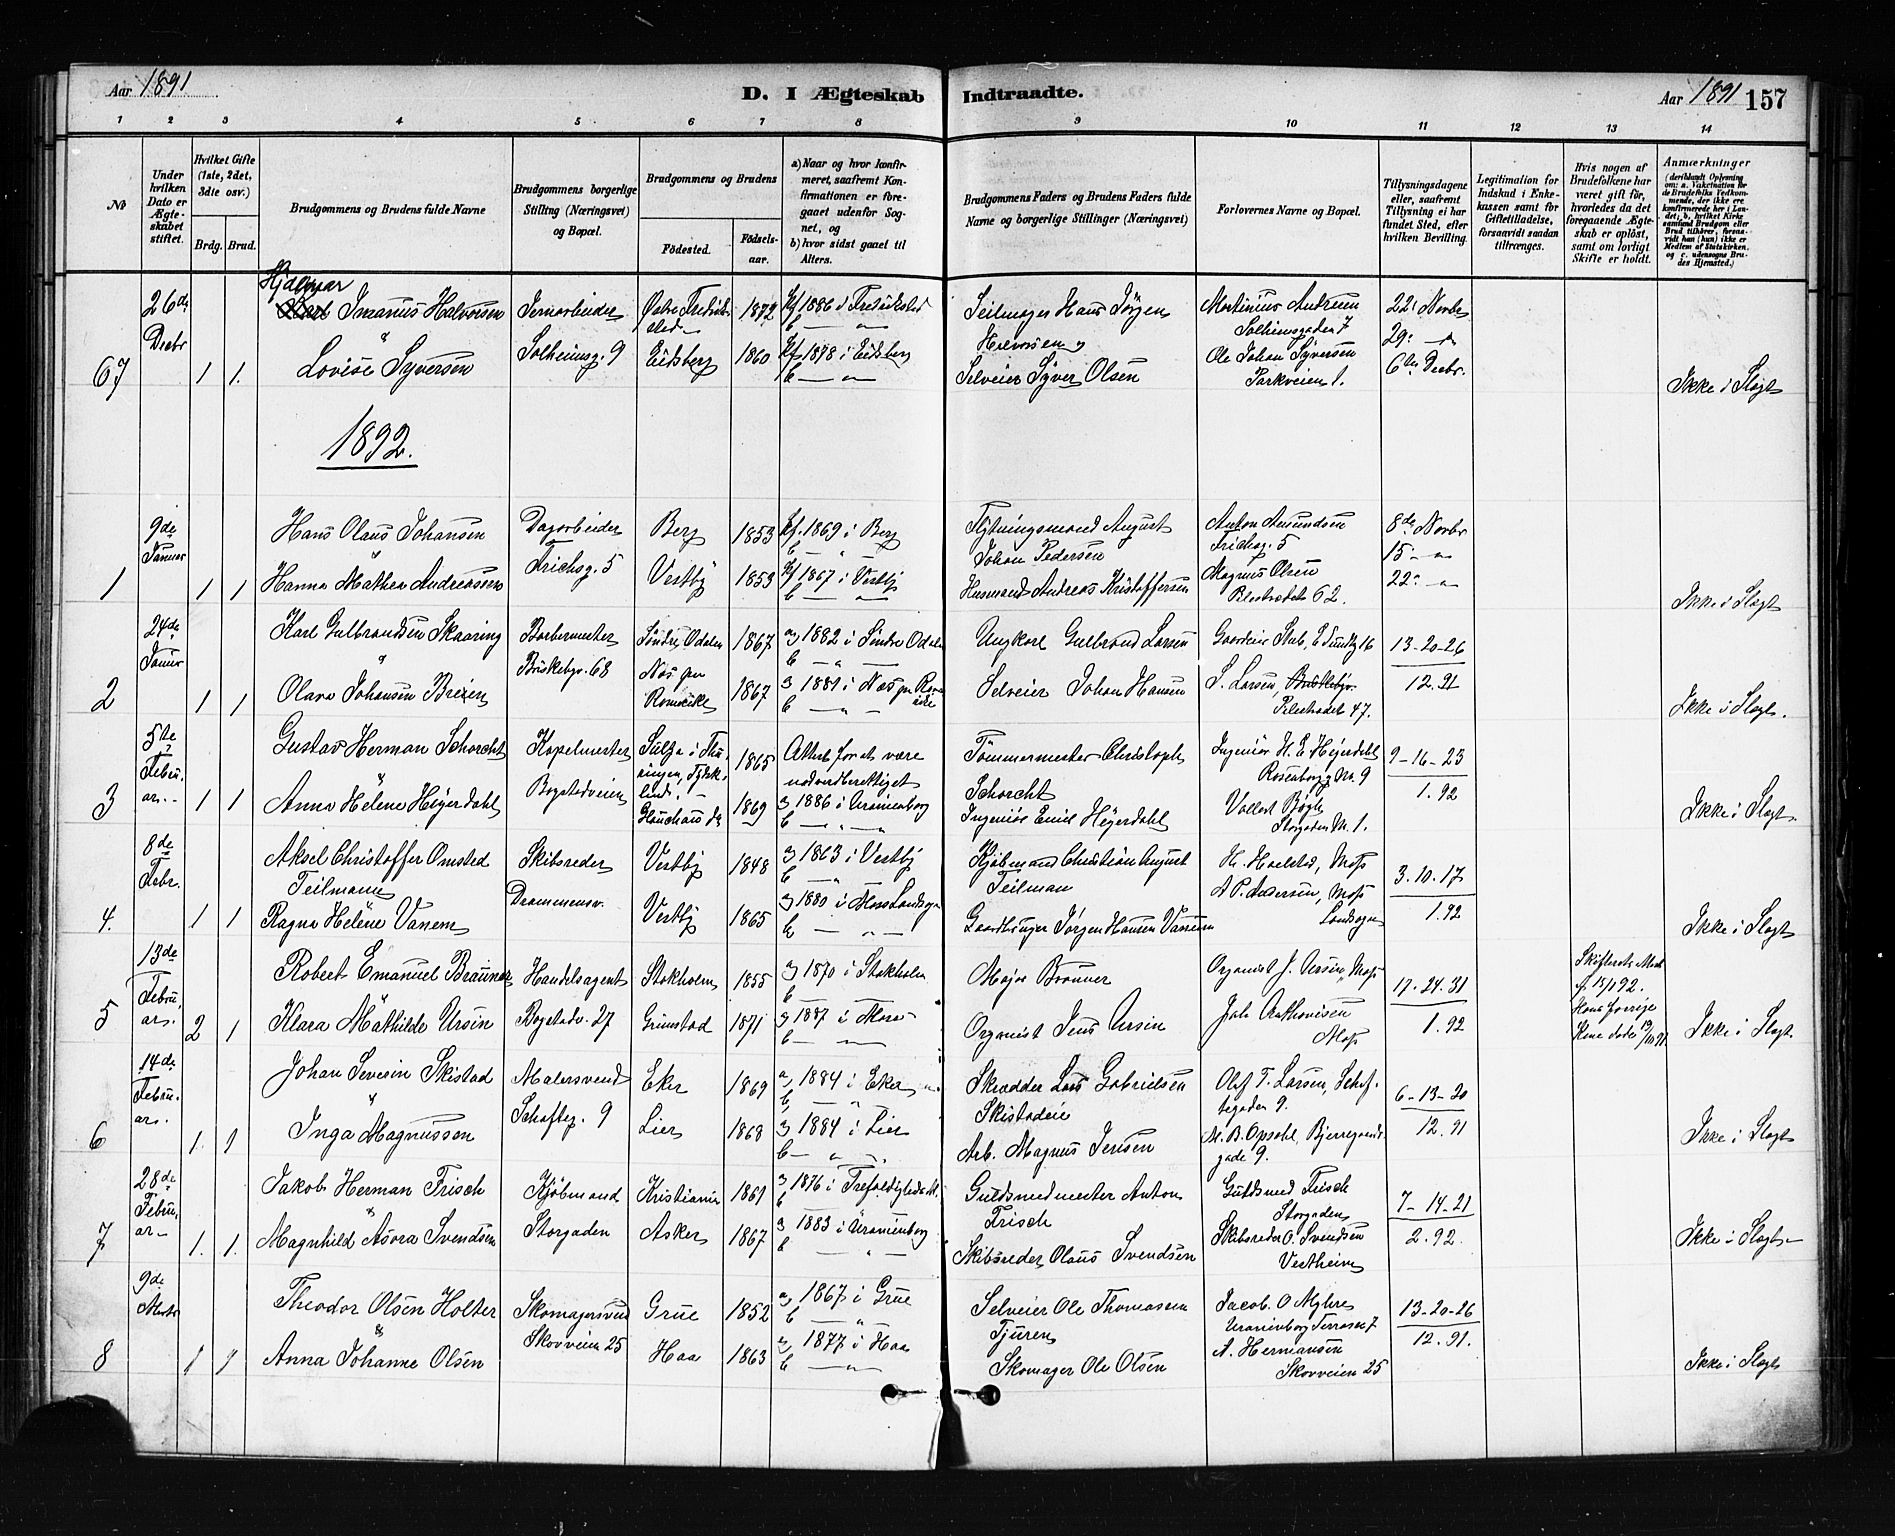 Aar 1891
D. I Ægteskab Indtraadte.
Aar 1891 157
1 2 3 4 5 6 7 8 9 10 11 12 13 14
No
Under hvilken Dato er Ægteskabet stiftet.
Hvilket Gifte (1ste, 2det, 3die osv.)
Brdg. Brud.
Brudgommens og Brudens fulde Navne
Brudgommens borgerlige Stilling (Næringsvei) og Bopæl.
Brudgommens og Brudens
Födested. Födsels-aar.
a) Naar og hvor konfirmeret, saafremt Konfirmationen er foregaaet udenfor Sognet, og
b) hvor sidst gaaet til Alters.
Brudgommens Faders og Brudens Faders fulde Navne og borgerlige Stillinger (Næringsvei)
Forlovernes Navne og Bopæl.
Tillysningsdagene eller, saafremt Tillysning ei har fundet Sted, efter hvilken Bevilling.
Legitimation for Indskud i Enkekassen samt for Giftetilladelse, forsaavidt saadan tiltrænges.
Hvis nogen af Brudefolkene har været gift før, hvorledes da det foregaaende Ægteskab er opløst, samt om lovligt Skifte er holdt.
Anmærkninger
67 26de Decbr 1 1.
Hjalmar
Karl Imanus Halvorsen
Lovise Syversen
Jernarbeider
Solheimsg. 9
Østre Fredriksted 1872
Eidsberg 1860
Kf 1886 i Fredrikstad
Kf 1878 i Eidsberg
Seilmager Hans Jørgen
Halvorsen
Selveier Syver Olsen
Martinius Andresen
Solheimsgaden 7
Ole Johan Syversen
Parkveien 1.
22. Novbr
29. "
6te Decbr.
Ikke i Slægt
1892.
1 9de Januar 1 1
Hans Olaus Johansen
Hanna Mathea Andreassen
Dagarbeider
Frichsg. 5
Berg 1853
Vestby 1853
Kf. 1869 i Berg
Kf 1867 i Vestby
Flytningsmand August
Johan Pedersen
Husmand Andreas Kristoffersen
Anton Amundsen
Frichsg. 5
Magnus Olsen
Pilestrædet 62.
8de Novbr
15. "
22. "
Ikke i Slægt
2 24de Januar 1 1
Karl Gulbrandsen Skaaring
Olava Johansen Breien
Barbermester
Briskebyv. 68
Søndre Odalen 1867
Næs paa Romerike 1867
a) 1882 i Søndre Odalen
a) 1881 i Næs paa Romerike
Ungkarl Gulbrand Larsen
Selveier Johan Hansen
S. Larsen, Briskebyv.
Pilestrædet 47.
13-20-26
12.91
Ikke i Slægt.
3 5te Februar. 1 1
Gustav Herman Schorcht
Anna Helene Heyerdahl
Kapelmester
Bogstadveien
Sulza i Thüringen, Tydskland. 1865
1869
Attest for at være
nadverdberettiget
a) 1886 i Uranienborg
Tømmermester Christoph
Schorcht
Ingeniør Emil Heyerdahl
Ingeniør H. E. Heyerdahl
Rosenborgg No. 9
Storgaden No. 1.
9-16-23
1.92
Ikke i Slægt.
4. 8de Febr. 1 1
Aksel Christoffer Omsted
Teilmann
Ragna Helene Vanem
Skibsreder
Drammensv.
Vestby 1848
Vestby 1865
a) 1863 i Vestby
a) 1880 i Moss Landsogn
Kjøbmand Christian August
Teilman
Gaardbruger Jørgen Hansen Vannem
H. Hoelstad, Moss
A P. Andersen, Moss
Landsogn
3.10.17
1.92
Ikke i Slægt
5 13de Februars. 2 1
Robert Emanuel Brauner
Klara Mathilde Ursin
Handelsagent
Bogstadv. 27
Stokholm 1855
Grimstad 1871
a) 1870 i Stokholm
a) 1887 i Moss
Major Brauner
Organist Jens Ursin
Organist J. Ursin, Moss
Moss
17.24.31
1.92
Skifteretts Attest
f. 15/1 92.
Hans forrige
Kone døde
Ikke i Slægt.
6 14de Februars. 1. 1
Johan Severin Skistad
Inga Magnussen
Malersvend
Schafteg. 9
Eker 1869
Lier 1868
a) 1884 i Eker
a) 1884 i Lier
Skrædder Lars Gabrielsen
Skistadeie
Arb. Magnus Jensen
Olaf T. Larsen, Schaftegaden 9.
M. B. Opsahl, Bjerregaardsgade 9.
6-13-20
12.91
Ikke i Slægt
7 28de Februar 1. 1.
Jakob Herman Frisch
Magnhild Asora Svendsen
Kjøbmand
Storgaden
Kristiania 1861
Asker 1867
a) 1876 i Trefoldigheds M.
a) 1883 i Uranienborg
Guldsmedmester Anton
Frisch
Skibsreder Olaus Svendsen
Guldsmed Frisch
Storgaden
Skibsreder O. Svendsen
Vestheim
7-14-21
2.92.
Ikke i Slægt
8 9de Marts 1 1
Theodor Olsen Holter
&
Anna Johanne Olsen
Skomagersvend
Skovveien 25
Grue 1852
Haa 1863
a) 1867 i Grue
a) 1877 i Haa
Selveier Ole Thomassen
Tjuren
Skomager Ole Olsen
Jacob. O Myhre
Uranienborg Terrasse 7
A. Hermansen
Skovveien 25
13-20-26
12.91.
Ikke i Slægt